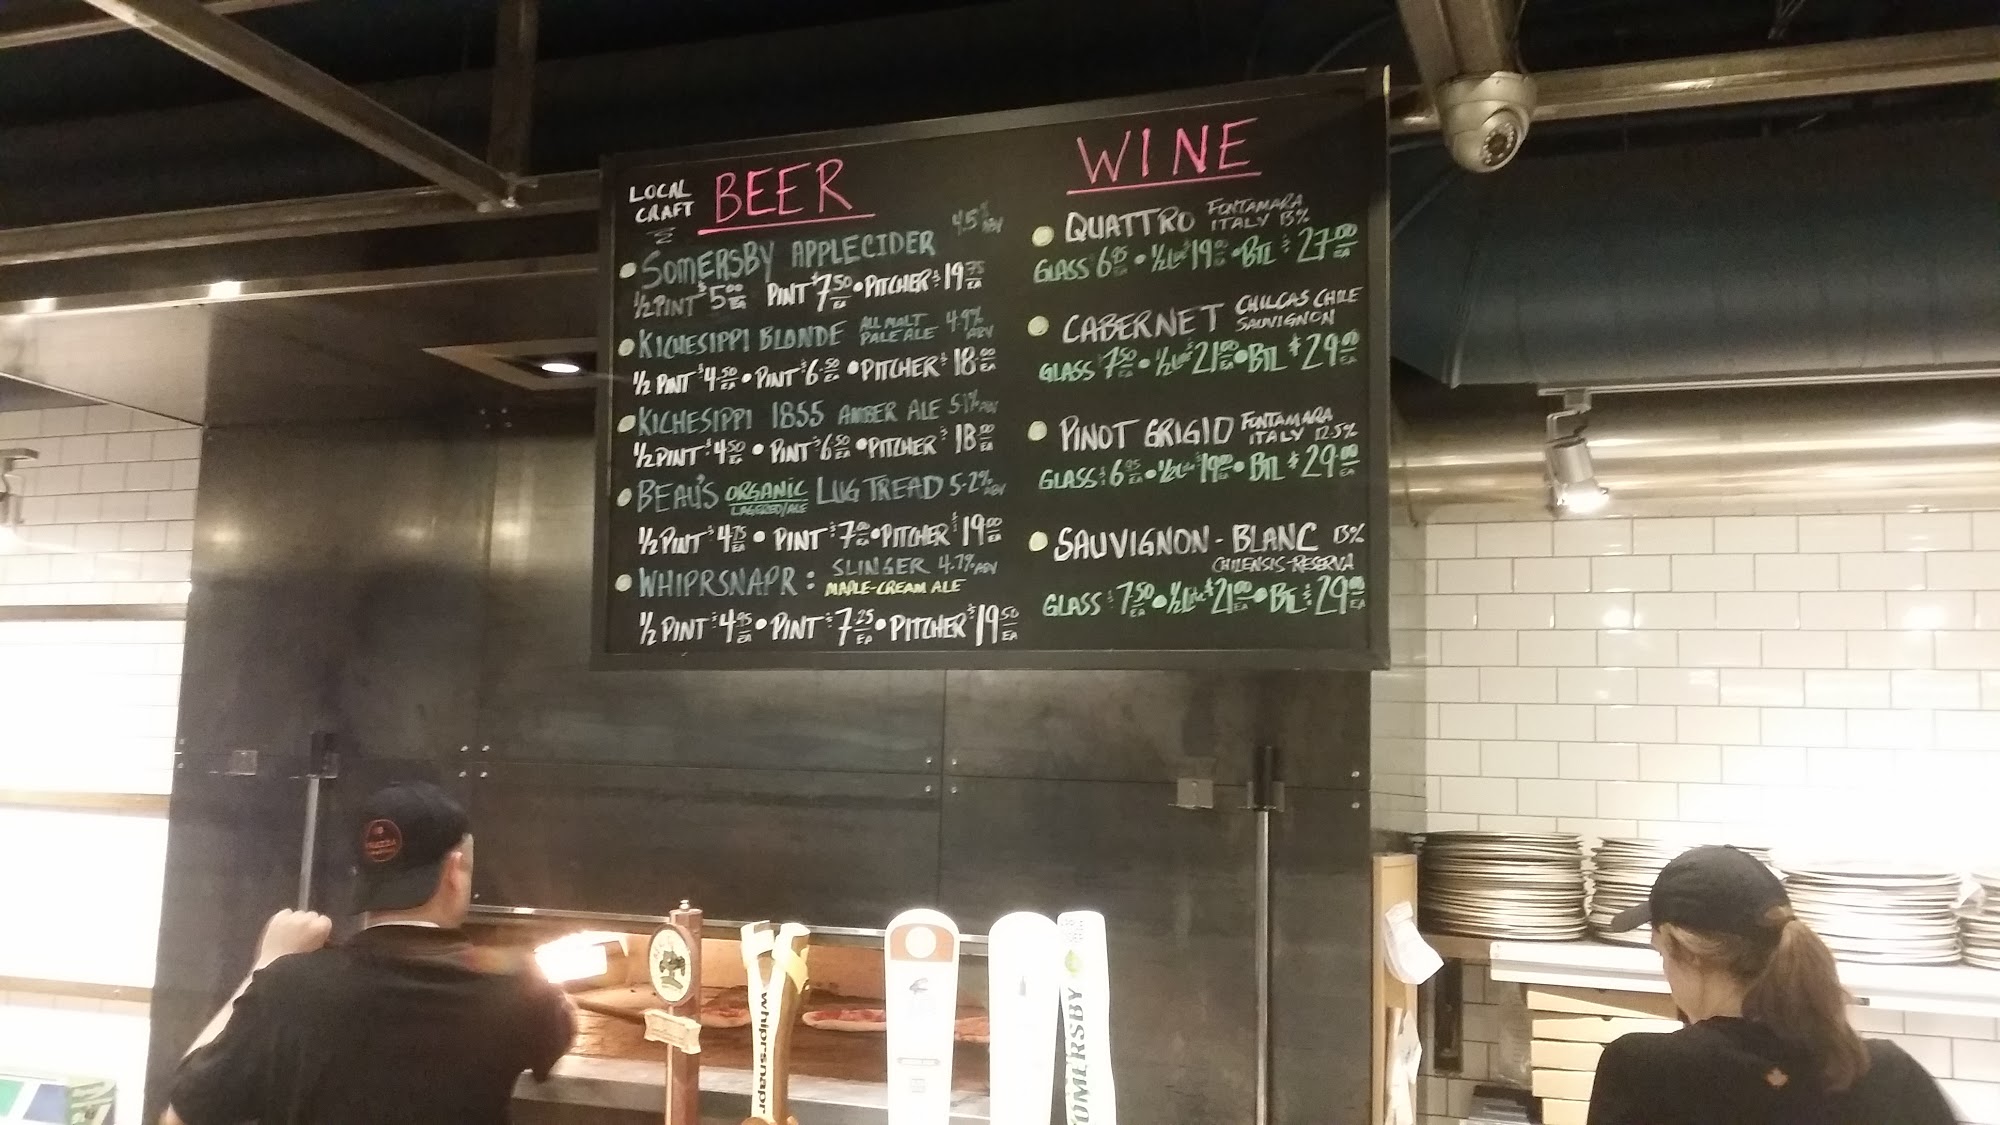 LOCAL
CRAFT
BEER
SOMERSBY APPLECIDER 4.5% ABV
1/2 PINT $5.00 EA PINT $7.50 EA • PITCHER $19.75 EA
KICHESIPPI BLONDE ALL MALT PALE ALE 4.9% ABV
1/2 PINT $4.50 EA • PINT $6.50 EA • PITCHER $18.00 EA
KICHESIPPI 1855 AMBER ALE 5.1% ABV
1/2 PINT $4.50 EA • PINT $6.50 EA • PITCHER $18.00 EA
BEAU'S ORGANIC LAGERED/ALE LUG TREAD 5.2% ABV
1/2 PINT $4.75 EA • PINT $7.00 EA • PITCHER $19.00 EA
WHIPRSNAPR: SLINGER 4.7% ABV
MAPLE-CREAM ALE
1/2 PINT $4.95 EA • PINT $7.25 EA • PITCHER $19.50 EA
WINE
QUATTRO FONTAMARA ITALY 13%
GLASS $6.95 EA • 1/2 Lit $19.00 EA • BTL $27.00 EA
CABERNET CHILCAS CHILE
SAUVIGNON
GLASS $7.50 EA • 1/2 Lit $21.00 EA • BTL $29.00 EA
PINOT GRIGIO FONTAMARA ITALY 12.5%
GLASS $6.95 EA • 1/2 Lit $19.00 EA • BTL $29.00 EA
SAUVIGNON-BLANC 13%
CHILENSIS-RESERVA
GLASS $7.50 EA • 1/2 Lite $21.00 EA • BTL $29.00 EA
whiprsnapr
OMERSBY